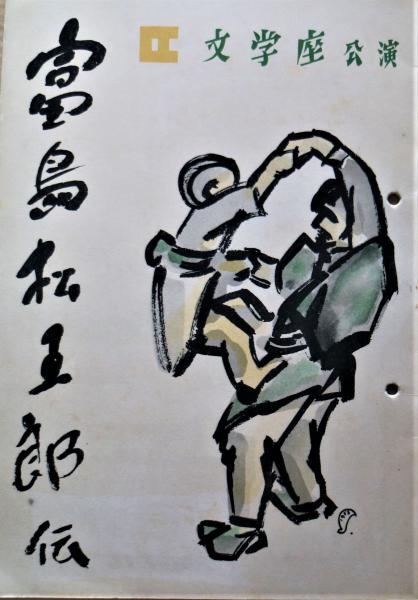 文学座公演
富島松五郎伝